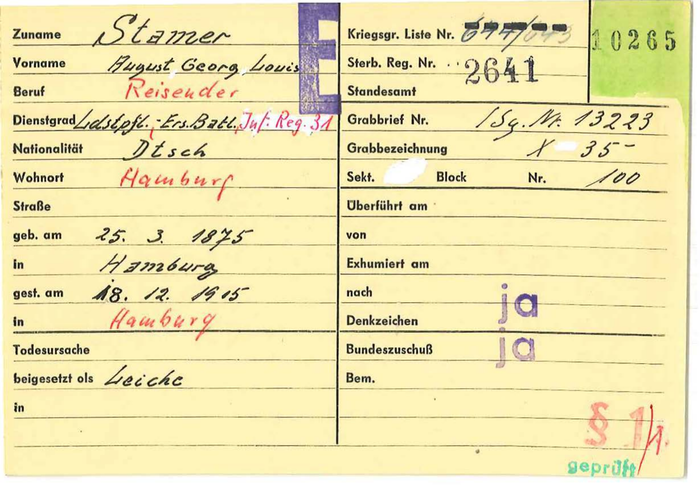 Zuname Stamer
Vorname August Georg Louis
Beruf Reisender
Dienstgrad Ldstpfl.-Ers.Batl. Inf. Reg. 31
Nationalität Dtsch
Wohnort Hamburg
Straße
geb. am 25. 3. 1875
in Hamburg
gest. am 18. 12. 1915
in Hamburg
Todesursache
beigesetzt als Leiche
in
E
Kriegsgr. Liste Nr.
10265
Sterb. Reg. Nr. 2641
Standesamt
Grabbrief Nr. 13223
Grabbezeichnung X 35-
Sekt. Block Nr. 100
Überführt am
von
Exhumiert am
nach
Denkzeichen ja
Bundeszuschuß ja
Bem.
§ 1/1.
geprüft